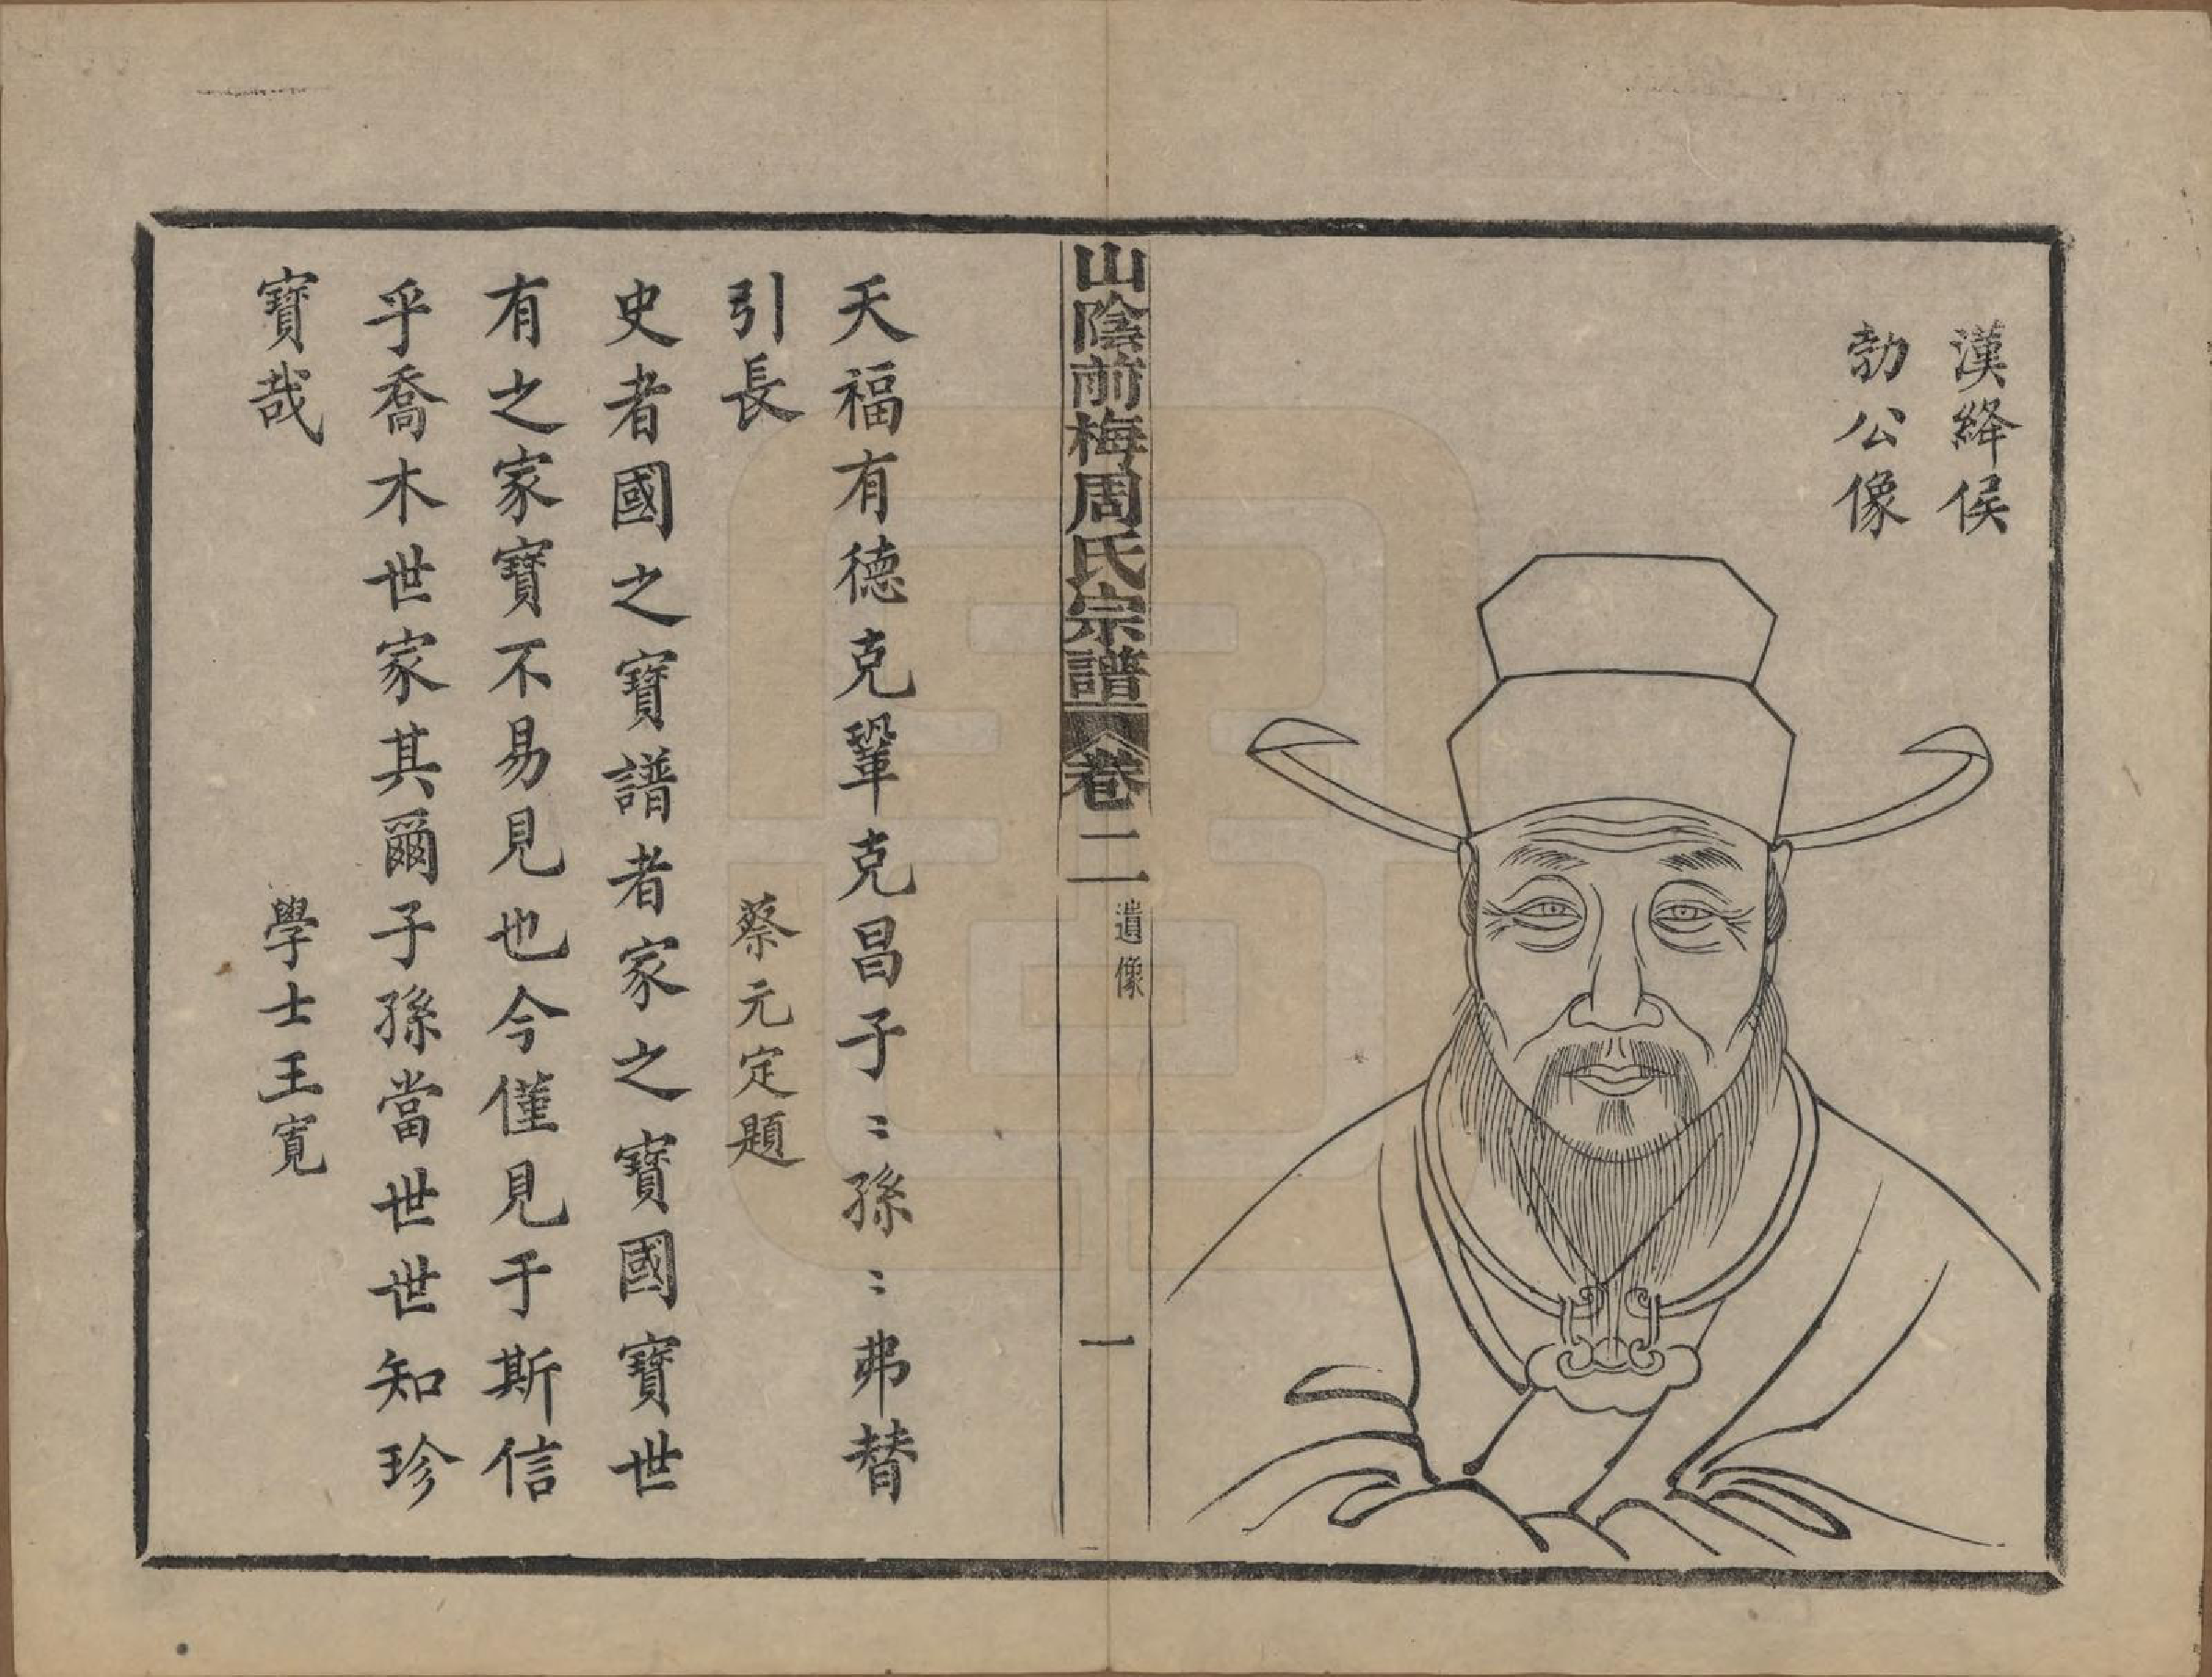 漢絳侯
勃公像
山陰前梅周氏宗譜
卷二
遺像
一
天福有德克鞏克昌子〻孫〻弗替
引長
蔡元定題
史者國之寶譜者家之寶國寶世
有之家寶不易見也今僅見于斯信
乎喬木世家其爾子孫當世世知珍
寶哉
學士王寬